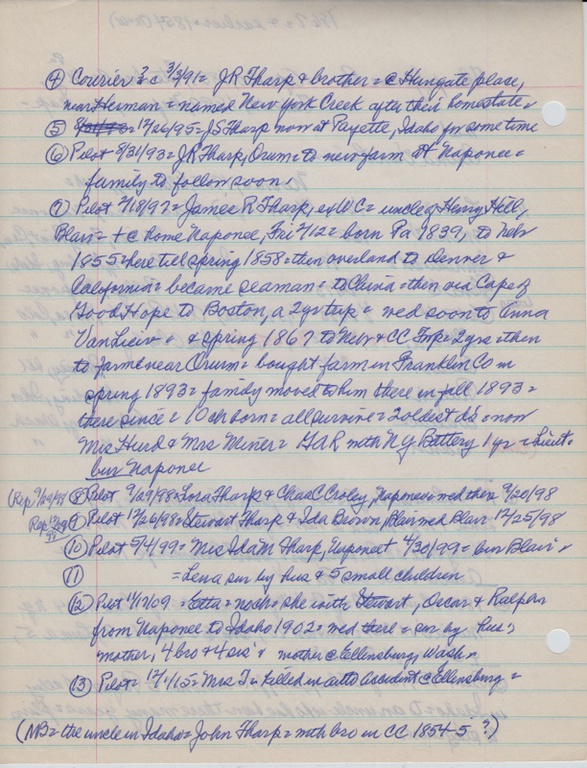 ④ Courier 3/3/91 = J R Tharp & brother = @ Hungate place,
near Herman = named New York Creek after their home state.
⑤ 12/26/95 = J S Tharp now at Payette, Idaho for some time
⑥ Pilot 8/31/93 = J R Tharp, Orum = to new farm at Naponee =
family to follow soon.
⑦ Pilot 2/18/97 = James R Tharp, ex WC = uncle of Henry Hill,
Blair = + @ home Naponee, Fri 2/12 = born Pa 1839, to Neb
1855 = here till spring 1858 = then overland to Denver &
California = became seaman = to China = then via Cape of
Good Hope to Boston, a 2 yr trip = wed soon to Anna
Van Lieiv & spring 1867 to Neb & CC Twp = 2 yrs = then
to farm near Orum = bought farm in Franklin Co in
spring 1893 = family moved to him there in fall 1893 =
there since = 10 ch born = all survive = 2 oldest ds = now
Mrs Hurd & Mrs Miner = GAR with NY Battery 1 yr = Lieut.
bur Naponee
(Rep 9/29/98) ⑧ Pilot 9/29/98 = Lora Tharp & Chas C Croley, Naponee = wed there 9/20/98
⑨ Pilot 12/26/98 = Stewart Tharp & Ida Brown, Blair wed Blair 12/25/98
⑩ Pilot 5/4/99 = Mrs Ida M Tharp, 4/30/99 = bur Blair
⑪ = Lena sur by hus & 5 small children
⑫ Pilot 11/17/09 = Etta = = she with Stewart, Oscar & Ralph
from Naponee to Idaho 1902 = wed there = sur by hus,
mother, 4 bro & 4 sis & mother @ Ellensburg, Wash.
⑬ Pilot = 12/1/15 = Mrs J = killed in auto accident @ Ellensburg =
(NB = the uncle in Idaho = John Tharp = with bro in CC 1854-5 ?)